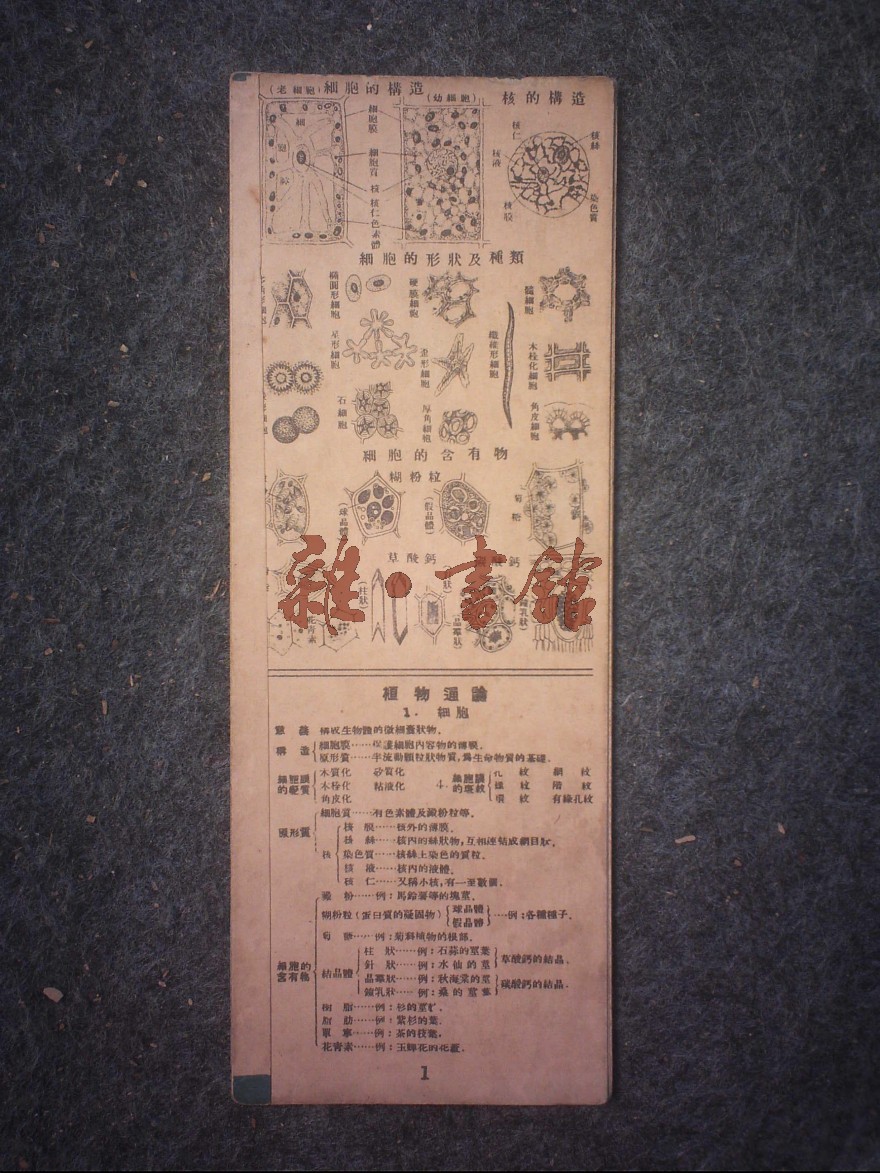 細胞的構造
(老細胞)
(幼細胞)
核的構造
細胞膜
細胞質
核
核仁
色素體
核仁
核液
核膜
核絲
染色質
細胞的形狀及種類
橢圓形細胞
硬膜細胞
星形細胞
纖維形細胞
木栓化細胞
石細胞
厚角細胞
角皮細胞
細胞的含有物
糊粉粒
(球晶體)
(假晶體)
菊糖
草酸鈣
(柱狀)
(晶簇狀)
(鐘乳狀)
花青素
雜·書館
植物通論
1. 細胞
意義 構成生物體的微細囊狀物.
構造 細胞膜……保護細胞內容物的薄膜.
原形質……半流動顆粒狀物質,為生命物質的基礎.
細胞膜的變質 木質化 矽質化
木栓化 粘液化
角皮化
細胞膜的斑紋 孔紋 網紋
螺紋 階紋
環紋 有緣孔紋
原形質 細胞質……有色素體及澱粉粒等.
核 核膜……核外的薄膜.
核絲……核內的絲狀物,互相連結成網目狀.
染色質……核絲上染色的質粒.
核液……核內的液體.
核仁……又稱小核,有一至數個.
細胞的含有物 澱粉……例:馬鈴薯等的塊莖.
糊粉粒(蛋白質的凝固物) 球晶體 假晶體 …例:各種種子.
菊糖……例:菊科植物的根部.
結晶體 柱狀……例:石蒜的莖葉
針狀……例:水仙的莖
草酸鈣的結晶.
晶簇狀……例:秋海棠的莖
鐘乳狀……例:桑的葉
碳酸鈣的結晶.
樹脂……例:杉的莖.
脂肪……例:紫杉的葉.
單寧……例:茶的枝葉.
花青素……例:玉蟬花的花蓋.
1